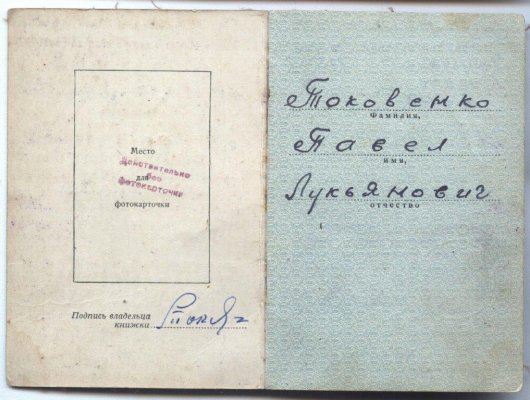 Место
для
фотокарточки
Действительно
без
фотокарточки
Подпись владельца
книжки
Токовенко
Фамилия,
Павел
имя,
Лукьянович
отчество